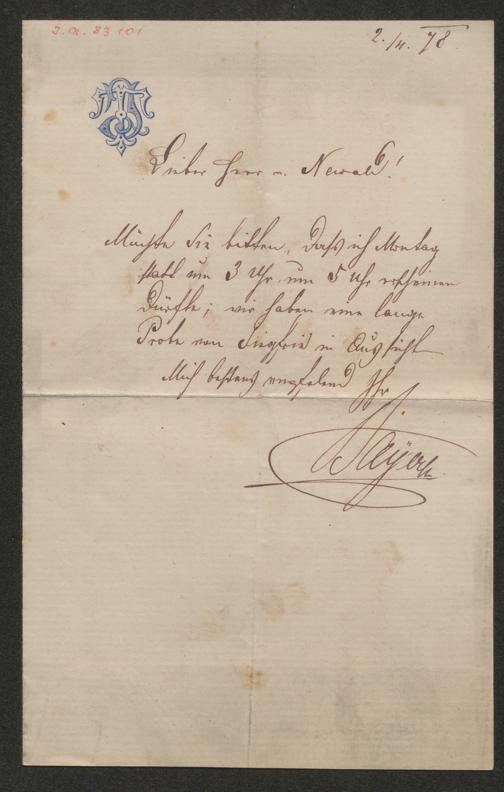 J.N. 83101
2./11. 78.
Lieber Herr v. Newald!
Möchte Sie bitten, daß ich Montag
statt um 3 Uhr um 5 Uhr erscheinen
dürfte; wir haben eine lange
Probe von Siegfried in Aussicht
Mich bestens empfehlend Ihr